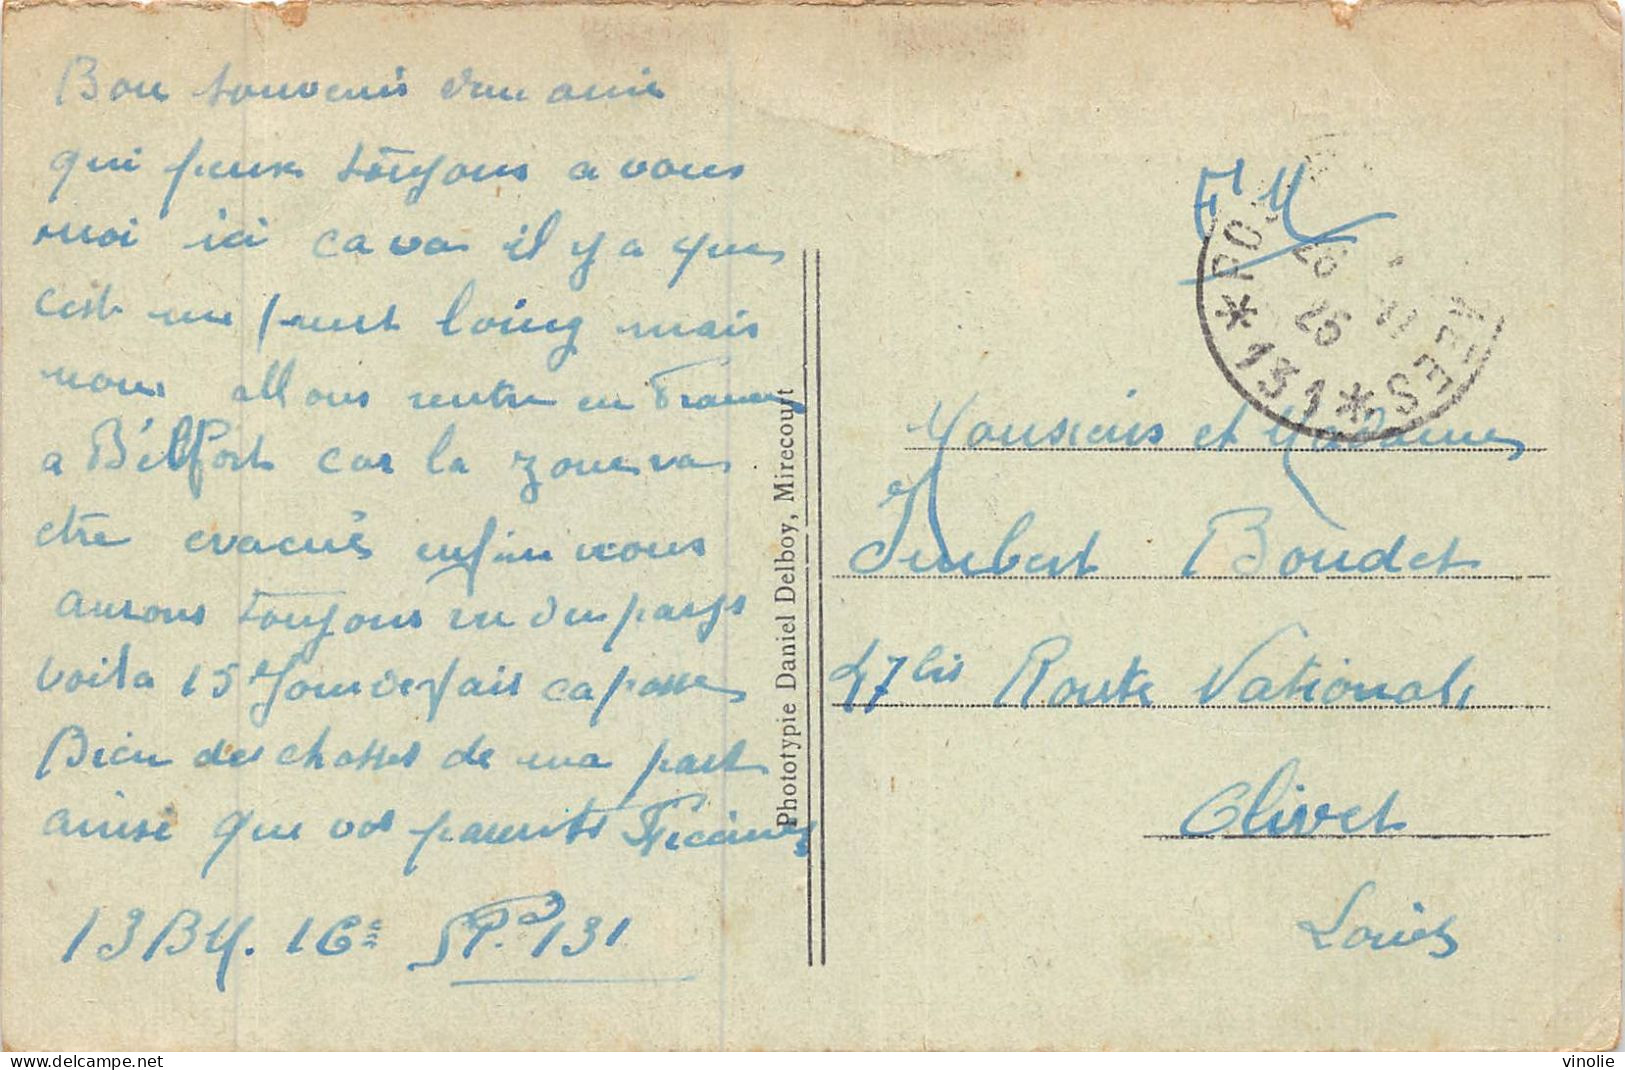 Bon souvenir d'un amie
qui pense toujous a vous
moi ici ca va il y a que
cest un peut loing mais
nous allons rentre en France
a Bélfort car la zone va
etre evacué enfin nous
aurons toujous vu du pays
voila 15 Jour de fait ca passe
Bien des chosses de ma part
ainsi que vos parents
13 BM. 1 Cie SP. 131
Phototypie Daniel Delboy, Mirecourt
FM
*131*
26
25
Monsieur et Madame
Imbert Boudet
47 bis Route National
Olivet
Loiret
vinolie